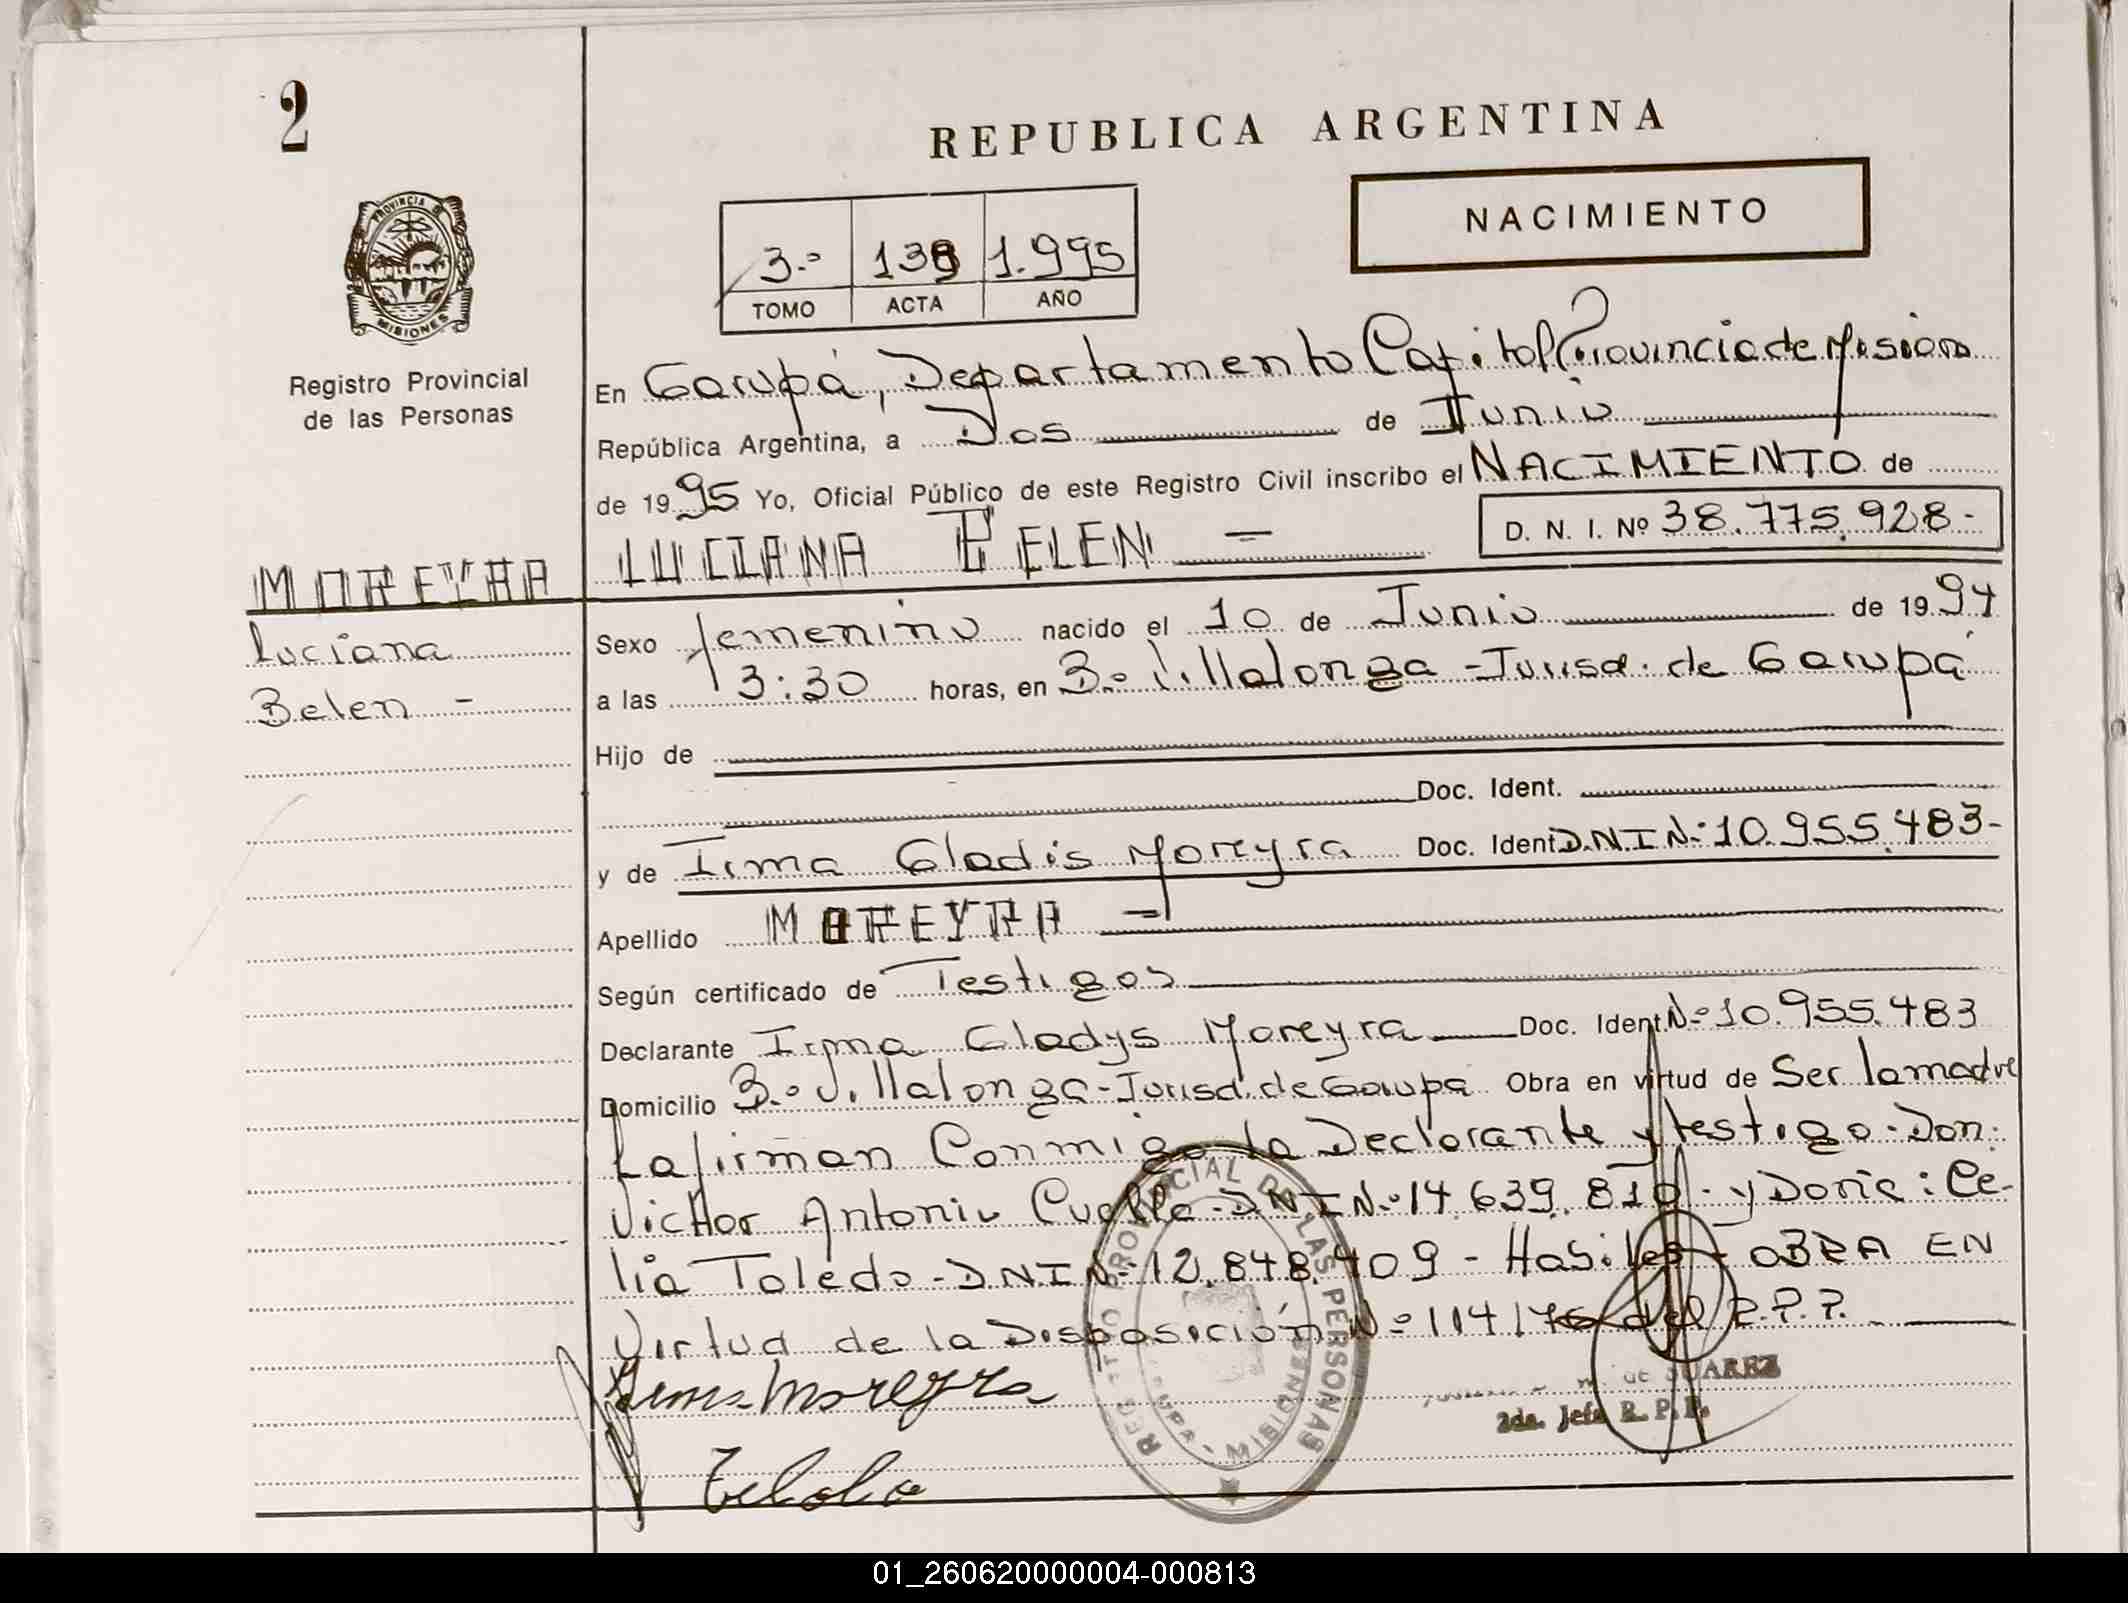 2
REPUBLICA ARGENTINA
NACIMIENTO
3.º 138 1.995
TOMO ACTA AÑO
PROVINCIA DE
MISIONES
Registro Provincial
de las Personas
En Garupá, Departamento Capital Provincia de Misiones
República Argentina, a Dos de Junio
de 1995 Yo, Oficial Público de este Registro Civil inscribo el NACIMIENTO de
LUCIANA BELEN - D. N. I. Nº 38.775.928-
MOREYRA
Luciana
Belen -
Sexo femenino nacido el 10 de Junio de 1994
a las 3:30 horas, en B.º Villalonga - Jurisd. de Garupá
Hijo de
Doc. Ident.
y de Irma Gladis Moreyra Doc. Ident D.N.I Nº 10.955.483-
Apellido MOREYRA -
Según certificado de Testigos
Declarante Irma Gladys Moreyra Doc. Ident. Nº 10.955.483
Domicilio B.º Villalonga - Jurisd. de Garupá Obra en virtud de Ser la madre
La firman Conmigo la Declarante y testigo - Don:
Victtor Antonio Cuello - DNI Nº 14.639.810 - y Doña: Ce-
lia Toledo - D.N.I Nº 12.848.409 - Habiles - OBRA EN
Virtud de la Disposición Nº 114/76 del R.P.P.
Irma Moreyra
de SUAREZ
2da. Jefe R. P. P.
REGISTRO PROVINCIAL DE LAS PERSONAS
MISIONES
01_260620000004-000813